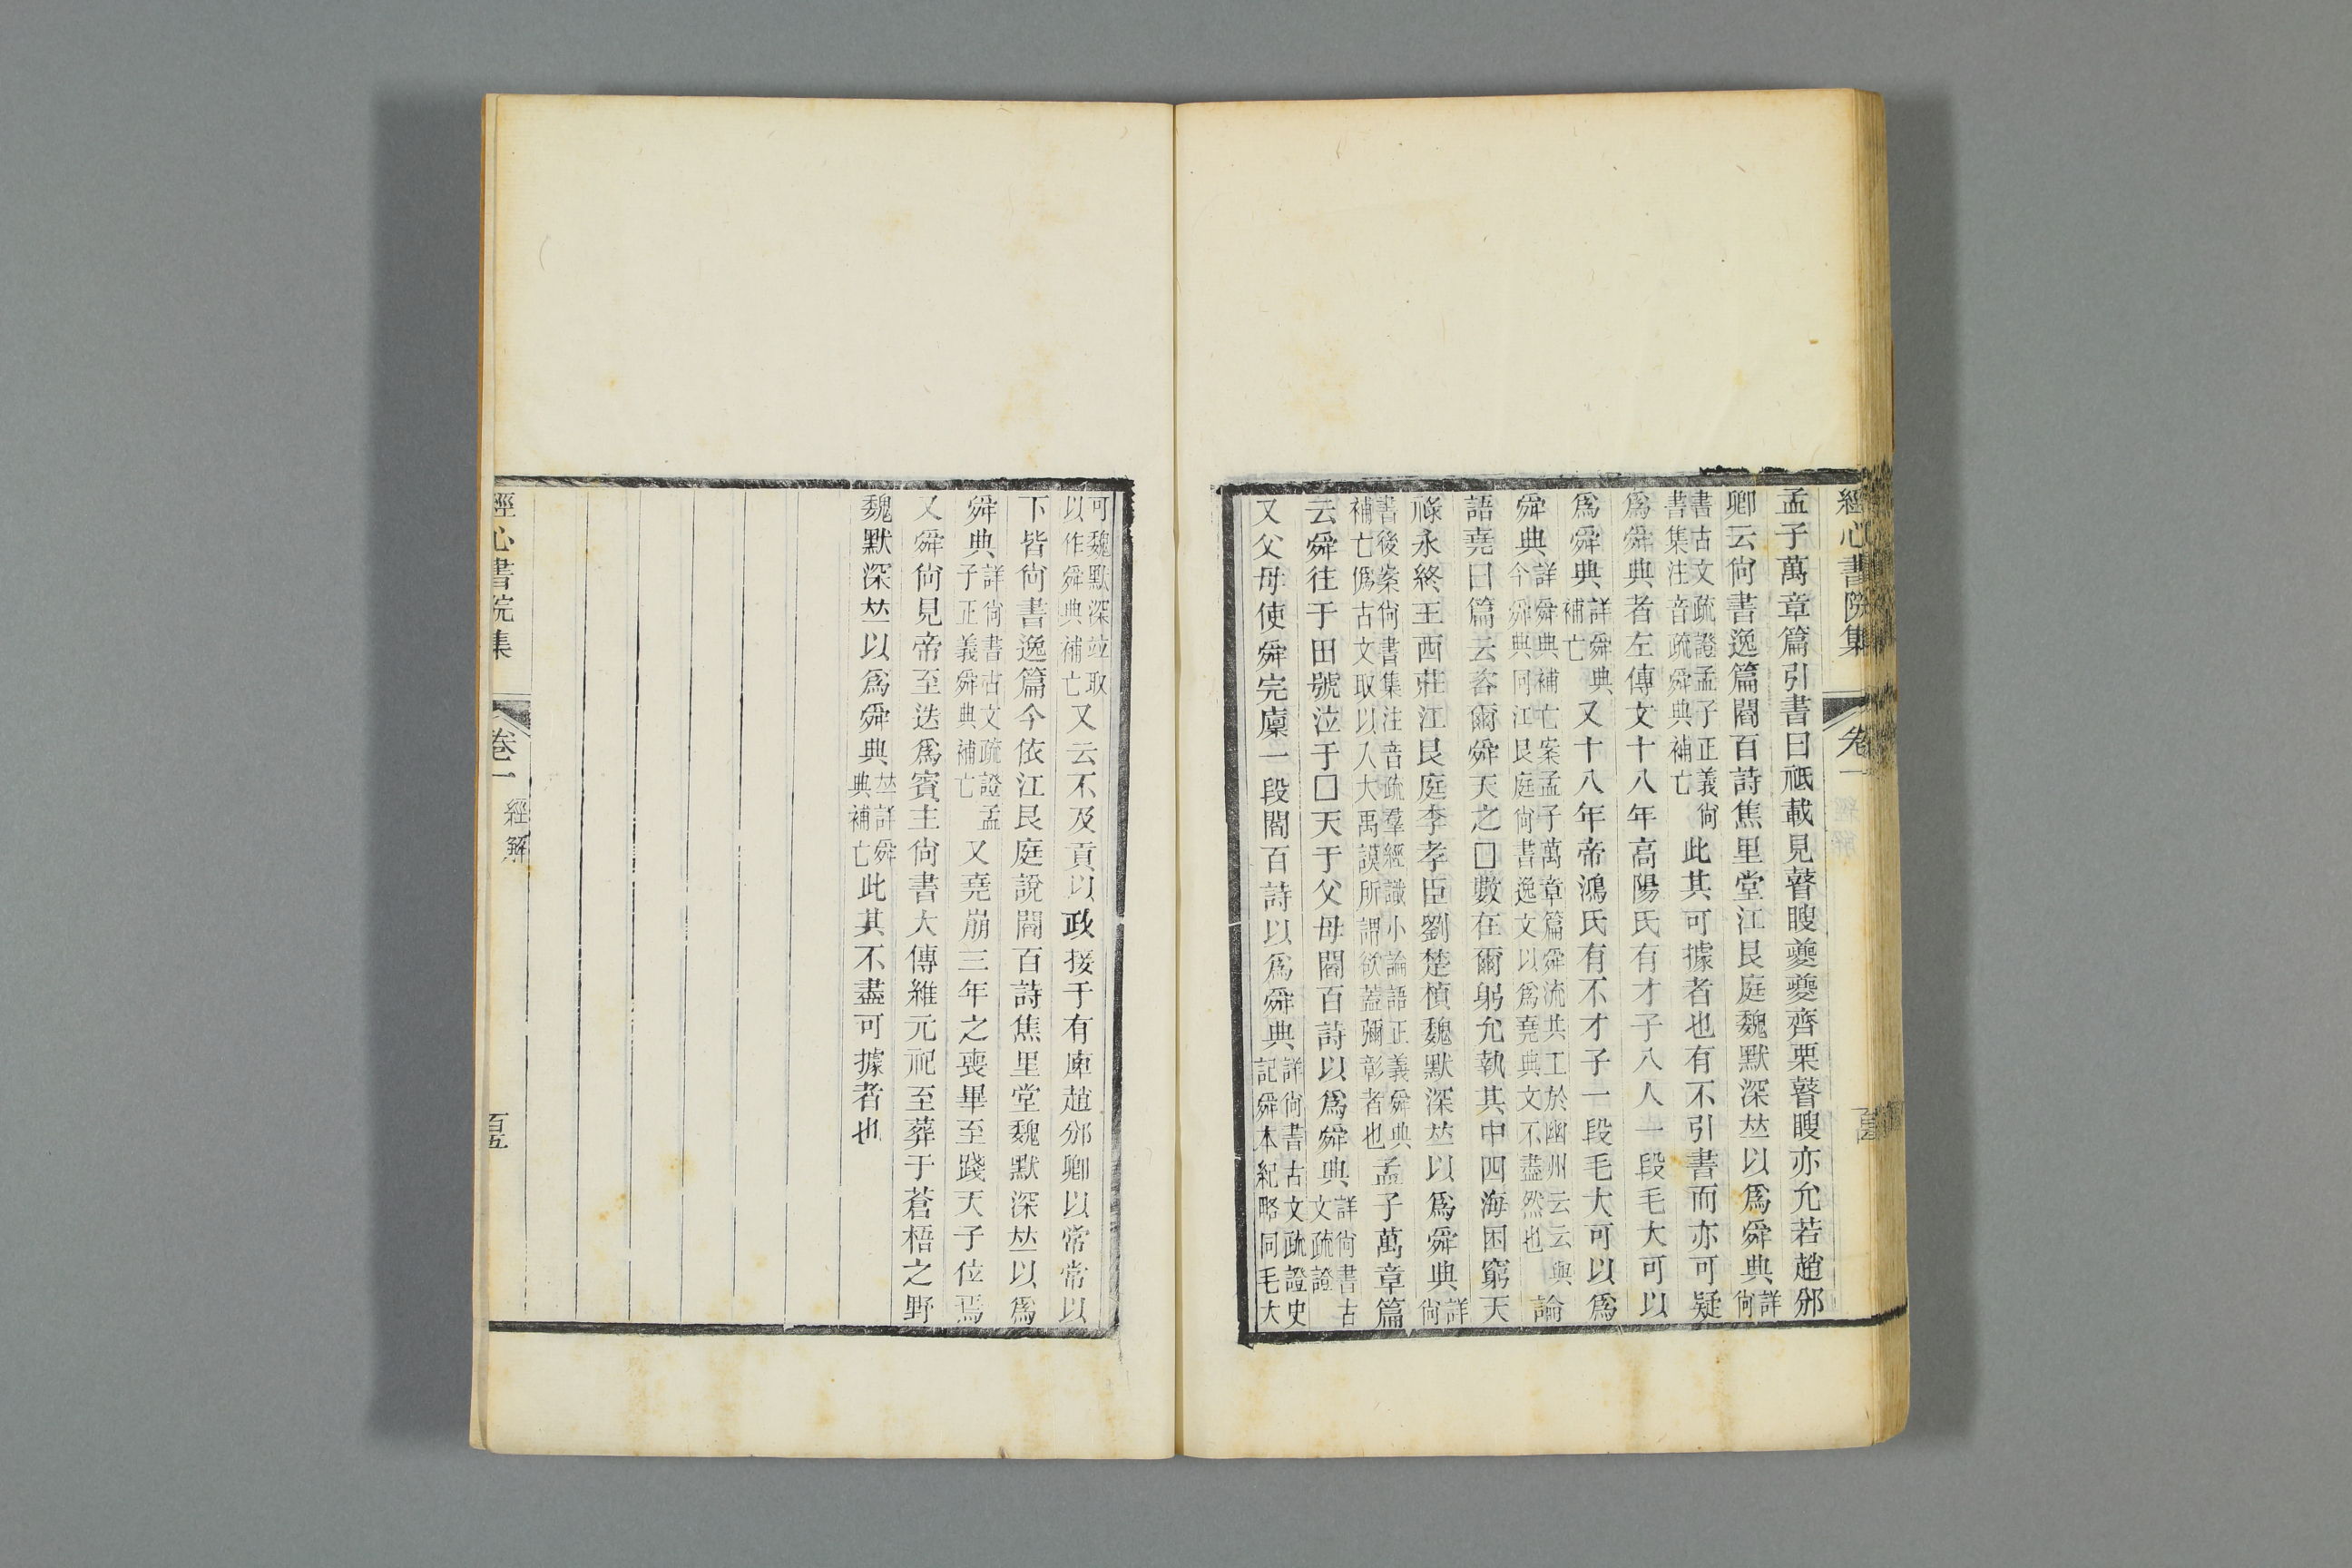 經心書院集 卷一 經解
孟子萬章篇引書曰祇載見瞽瞍夔夔齊栗瞽瞍亦允若趙邠
卿云尙書逸篇閻百詩焦里堂江艮庭魏默深竝以爲舜典詳尙
書古文疏證孟子正義尙書集注音疏舜典補亡此其可據者也有不引書而亦可疑
爲舜典者左傳文十八年高陽氏有才子八人一段毛大可以
爲舜典詳舜典補亡又十八年帝鴻氏有不才子一段毛大可以爲
舜典詳舜典補亡案孟子萬章篇舜流共工於幽州云云與今舜典同江艮庭尙書逸文以爲堯典文不盡然也論
語堯曰篇云咨爾舜天之□數在爾躬允執其中四海困窮天
祿永終王西莊江艮庭李孝臣劉楚楨魏默深竝以爲舜典詳尙
書後案尙書集注音疏羣經識小論語正義舜典補亡僞古文取以入大禹謨所謂欲蓋彌彰者也孟子萬章篇
云舜往于田號泣于□天于父母閻百詩以爲舜典詳尙書古文疏證
又父母使舜完廩一段閻百詩以爲舜典詳尙書古文疏證史記舜本紀略同毛大
可魏默深竝取以作舜典補亡又云不及貢以政接于有庳趙邠卿以常常以
下皆尙書逸篇今依江艮庭說閻百詩焦里堂魏默深竝以爲
舜典詳尙書古文疏證孟子正義舜典補亡又堯崩三年之喪畢至踐天子位焉
又舜尙見帝至迭爲賓主尙書大傳維元祀至葬于蒼梧之野
魏默深竝以爲舜典竝詳舜典補亡此其不盡可據者也
經心書院集 卷一 經解 百五